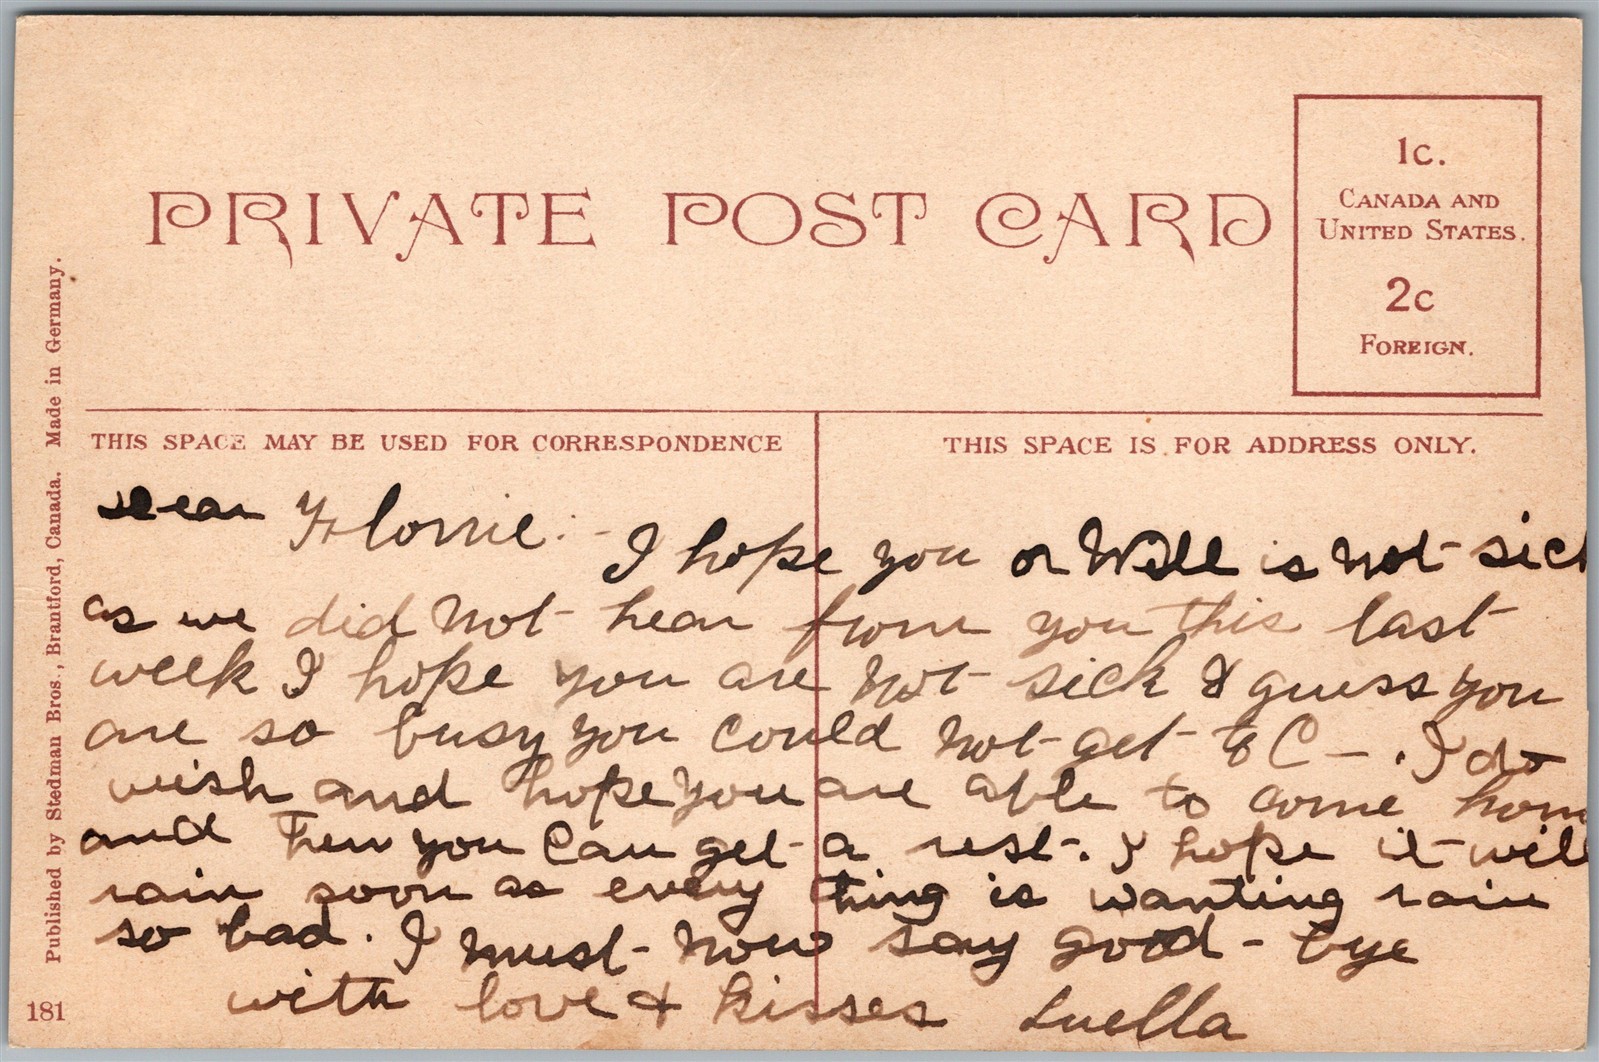 PRIVATE POST CARD
1c.
CANADA AND
UNITED STATES.
2c
FOREIGN.
THIS SPACE MAY BE USED FOR CORRESPONDENCE
THIS SPACE IS FOR ADDRESS ONLY.
Published by Stedman Bros., Brantford, Canada. Made in Germany.
181
Dear Florrie:-
I hope you or Will is not sick
as we did not hear from you this last
week I hope you are not sick I guess you
are so busy you could not get to C-. I do
wish and hope you are able to come hom
and then you can get a rest. I hope it will
rain soon as every thing is wanting rain
so bad. I must now say good-bye
with love & kisses Luella